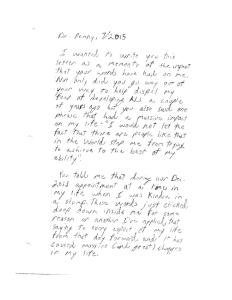 Dr. Penny, 7/2015
I wanted to write you this
letter as a memento of the impact
that your words have had on me.
Not only did you go way out of
your way to help dispel my
fear of developing ALS a couple
of years ago but you also said one
phrase that had a massive impact
on my life - "I would not let the
fact that there are people like that
in the world stop me from trying
to achieve to the best of my
ability".
You told me that during our Dec.
2013 appointment at a time in
my life when I was kinda in
a slump. Those words just clicked
deep down inside me for some
reason or another. I've applied that
saying to every aspect of my life
from that day forward, and it has
caused massive (and great) changes
in my life.